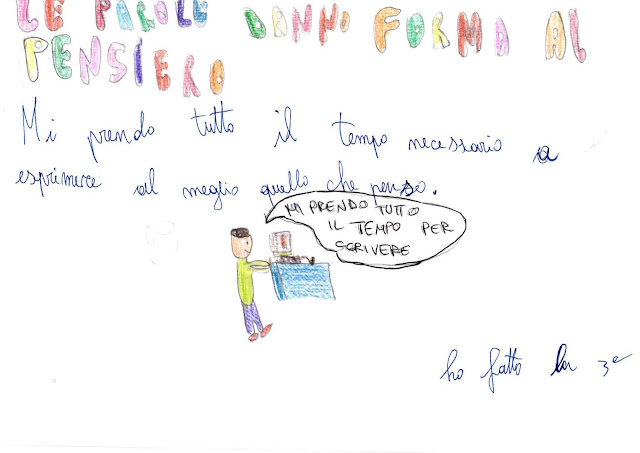 LE PAROLE DANNO FORMA AL
PENSIERO
Mi prendo tutto il tempo necessario a
esprimere al meglio quello che penso.
MI PRENDO TUTTO
IL TEMPO PER
SCRIVERE
ho fatto la 3ª